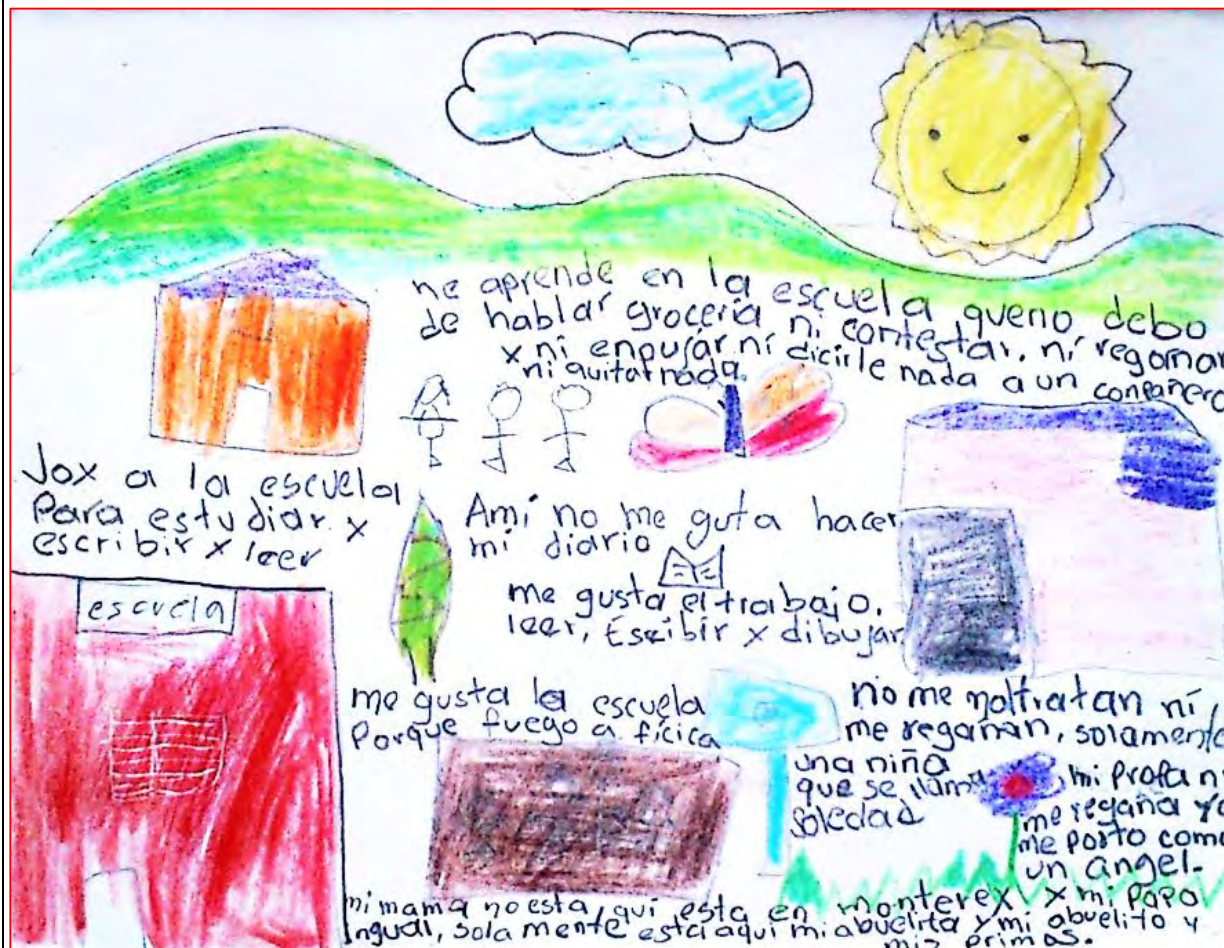 he aprende en la escuela queno debo
de hablar grocería ni contestar, ni regañar
x ni enpujar ni dicirle nada a un conpañero
ni quitar nada.
Vox a la escuela
Para estudiar x
escribir x leer
Ami no me guta hacer
mi diario
me gusta el trabajo,
leer, Escibir x dibujar
escuela
me gusta la escuela
Porque fuego a fícica
no me maltratan ni
me regañan, solamente
una niña
que se llama
Soledad
mi profa ni
me regaña yo
me porto como
un angel.
mi mama no esta qui esta en monterex x mi papa
Ingual, sola mente esta aqui mi abuelita y mi abuelito y
mis primas.